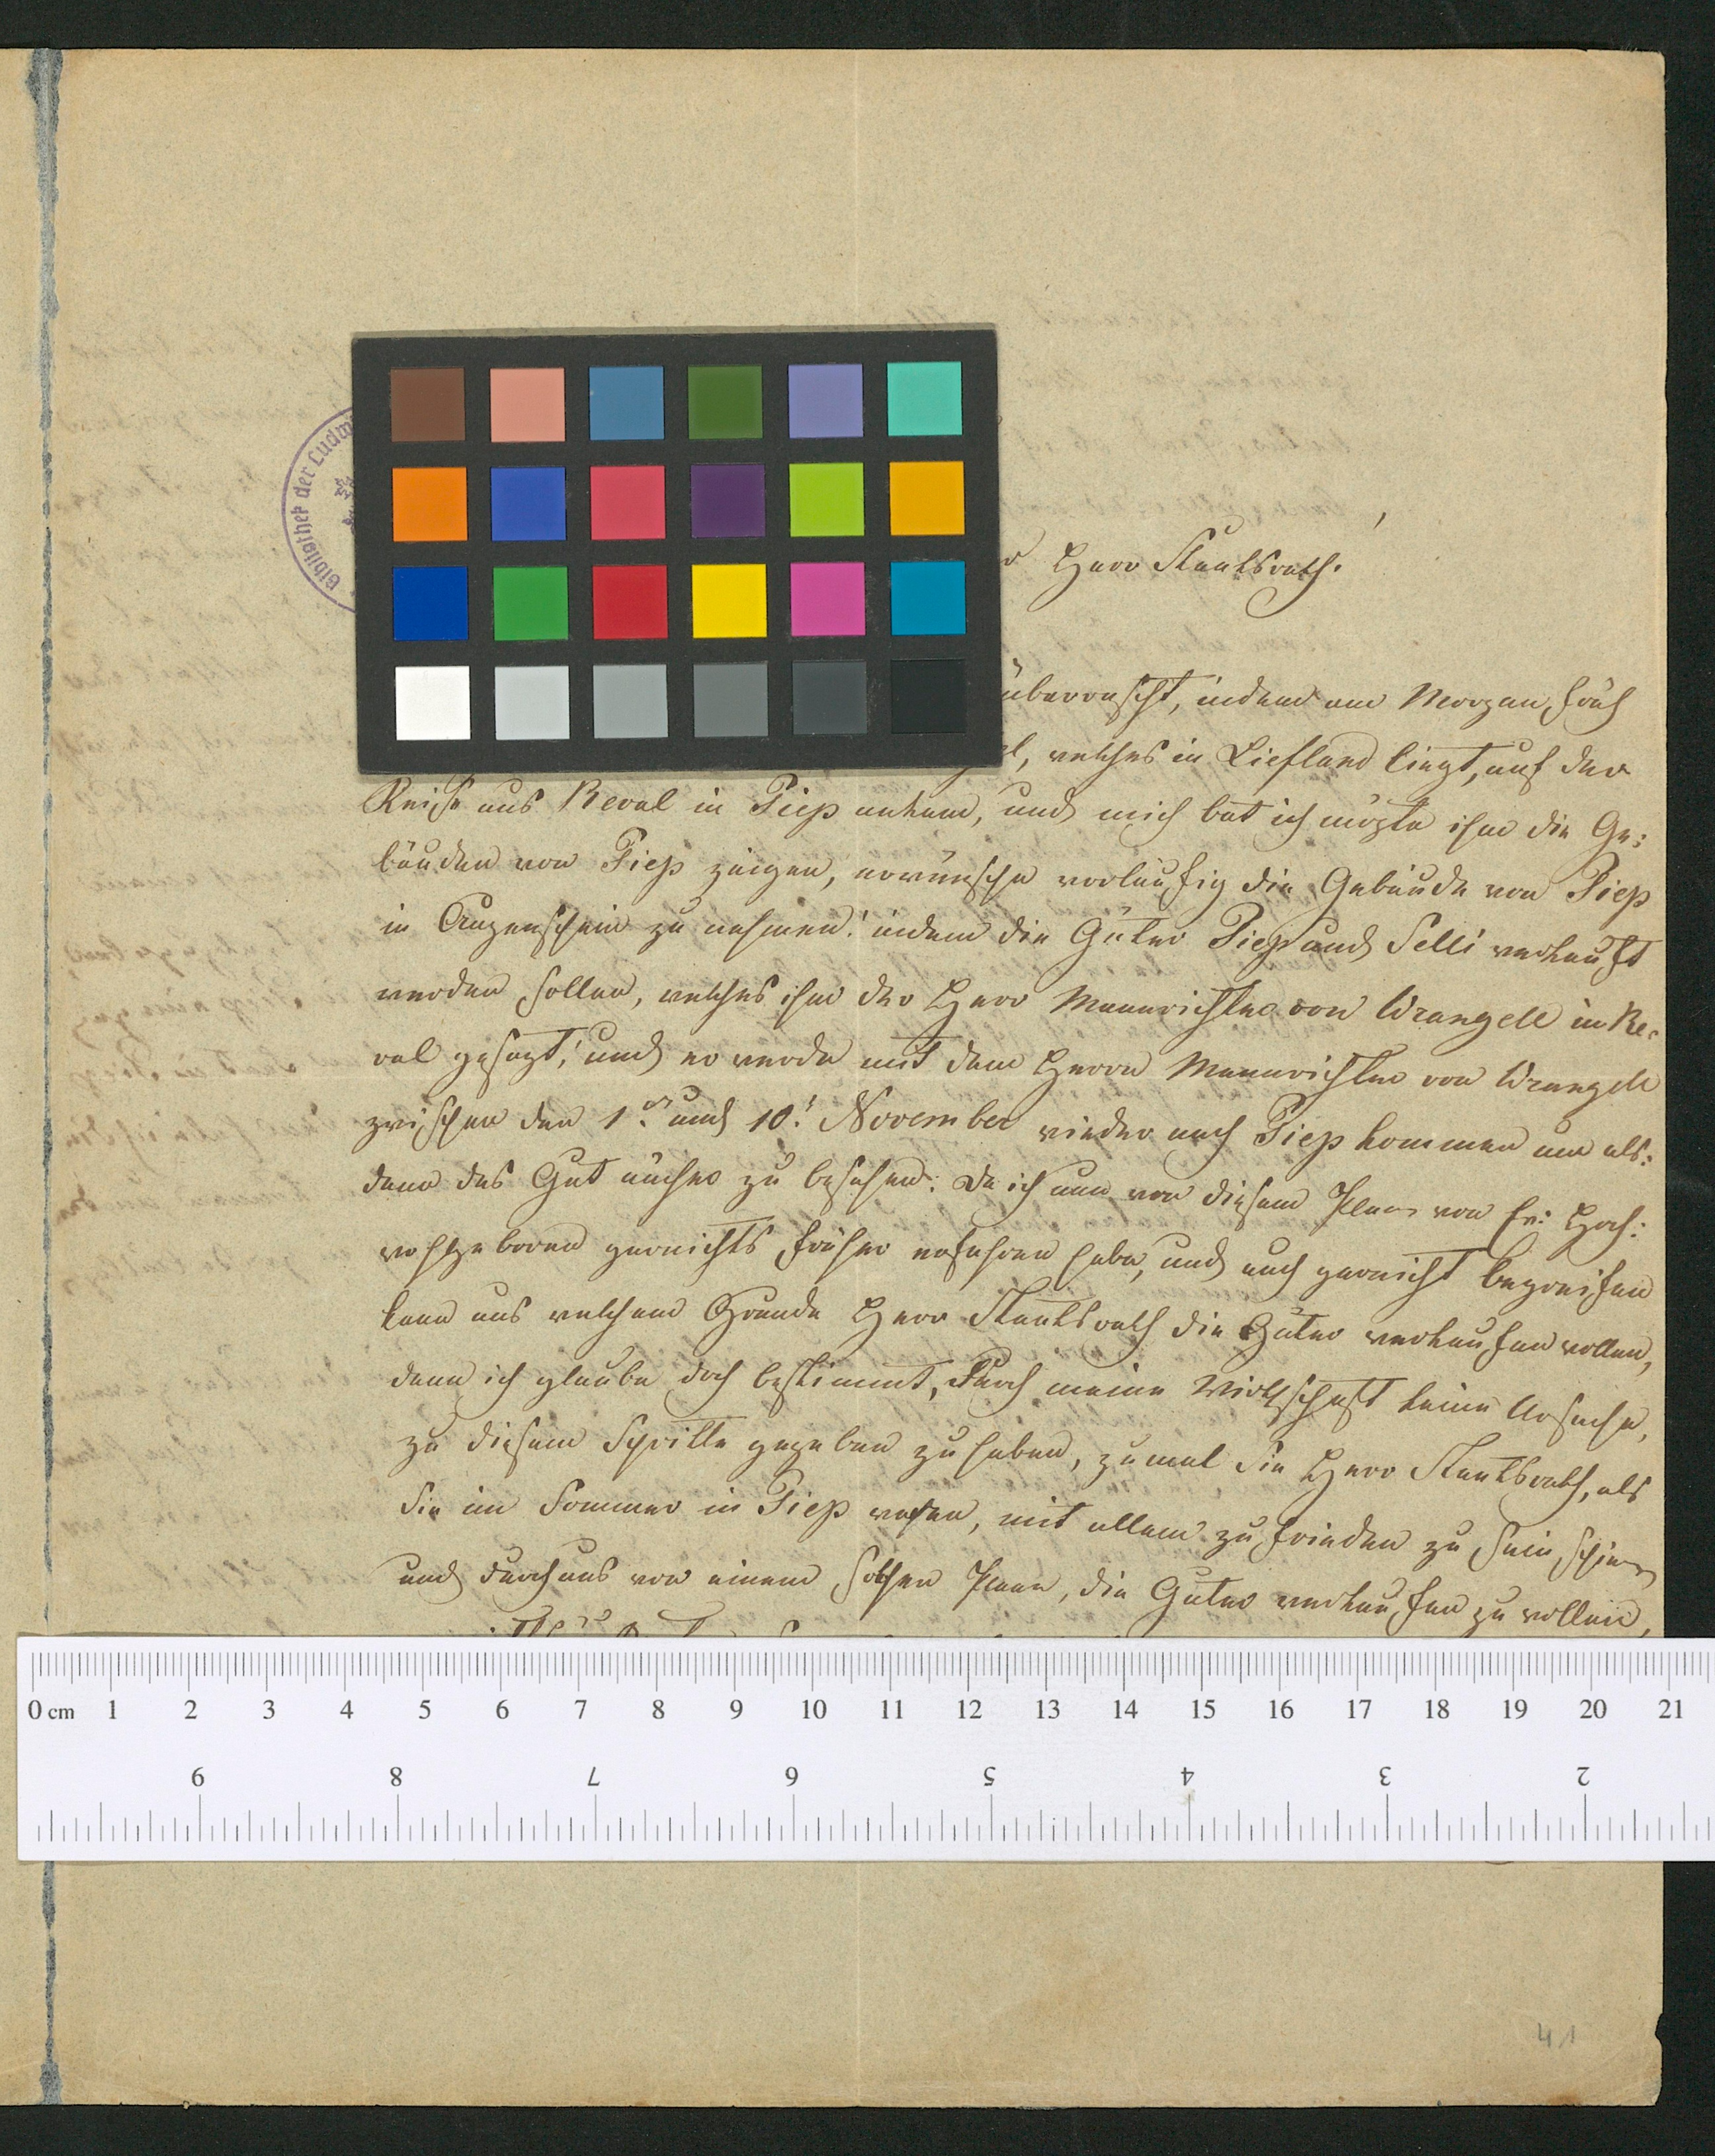 Bibliothek der Ludw
Herr Staatsrath!
überrascht, indem am Morgen früh
welches in Liefland liegt, auf der
Reise aus Reval in Piep ankam, und mich bat ich mögte ihm die Ge:
bäuden von Piep zeigen, er wünsche vorläufig die Gebäude von Piep
in Augenschein zu nehmen! indem die Güter Piep und Selli verkauft
werden sollen, welches ihm der Herr Mannrichter von Wrangell in Re:
val gesagt! und er werde mit dem Herrn Mannrichter von Wrangell
zwischen den 1. und 10! November wieder nach Piep kommen um als:
dann das Gut näher zu besehen. Da ich nun von diesem Plane von Er: Hoch:
wohlgeboren garnichts früher erfahren habe, und auch garnicht begreifen
kann aus welchem Grunde Herr Staatsrath die Güter verkaufen wollen,
denn ich glaube doch bestimmt, durch meine Wirthschaft keine Ursache,
zu diesem Schritte gegeben zu haben, zumal Sie Herr Staatsrath, als
Sie im Sommer in Piep waren, mit allem zufrieden zu sein schienen
und durchaus von einem solchen Plane, die Güter verkaufen zu wollen,
0 cm 1 2 3 4 5 6 7 8 9 10 11 12 13 14 15 16 17 18 19 20 21
9 8 7 6 5 4 3 2
41